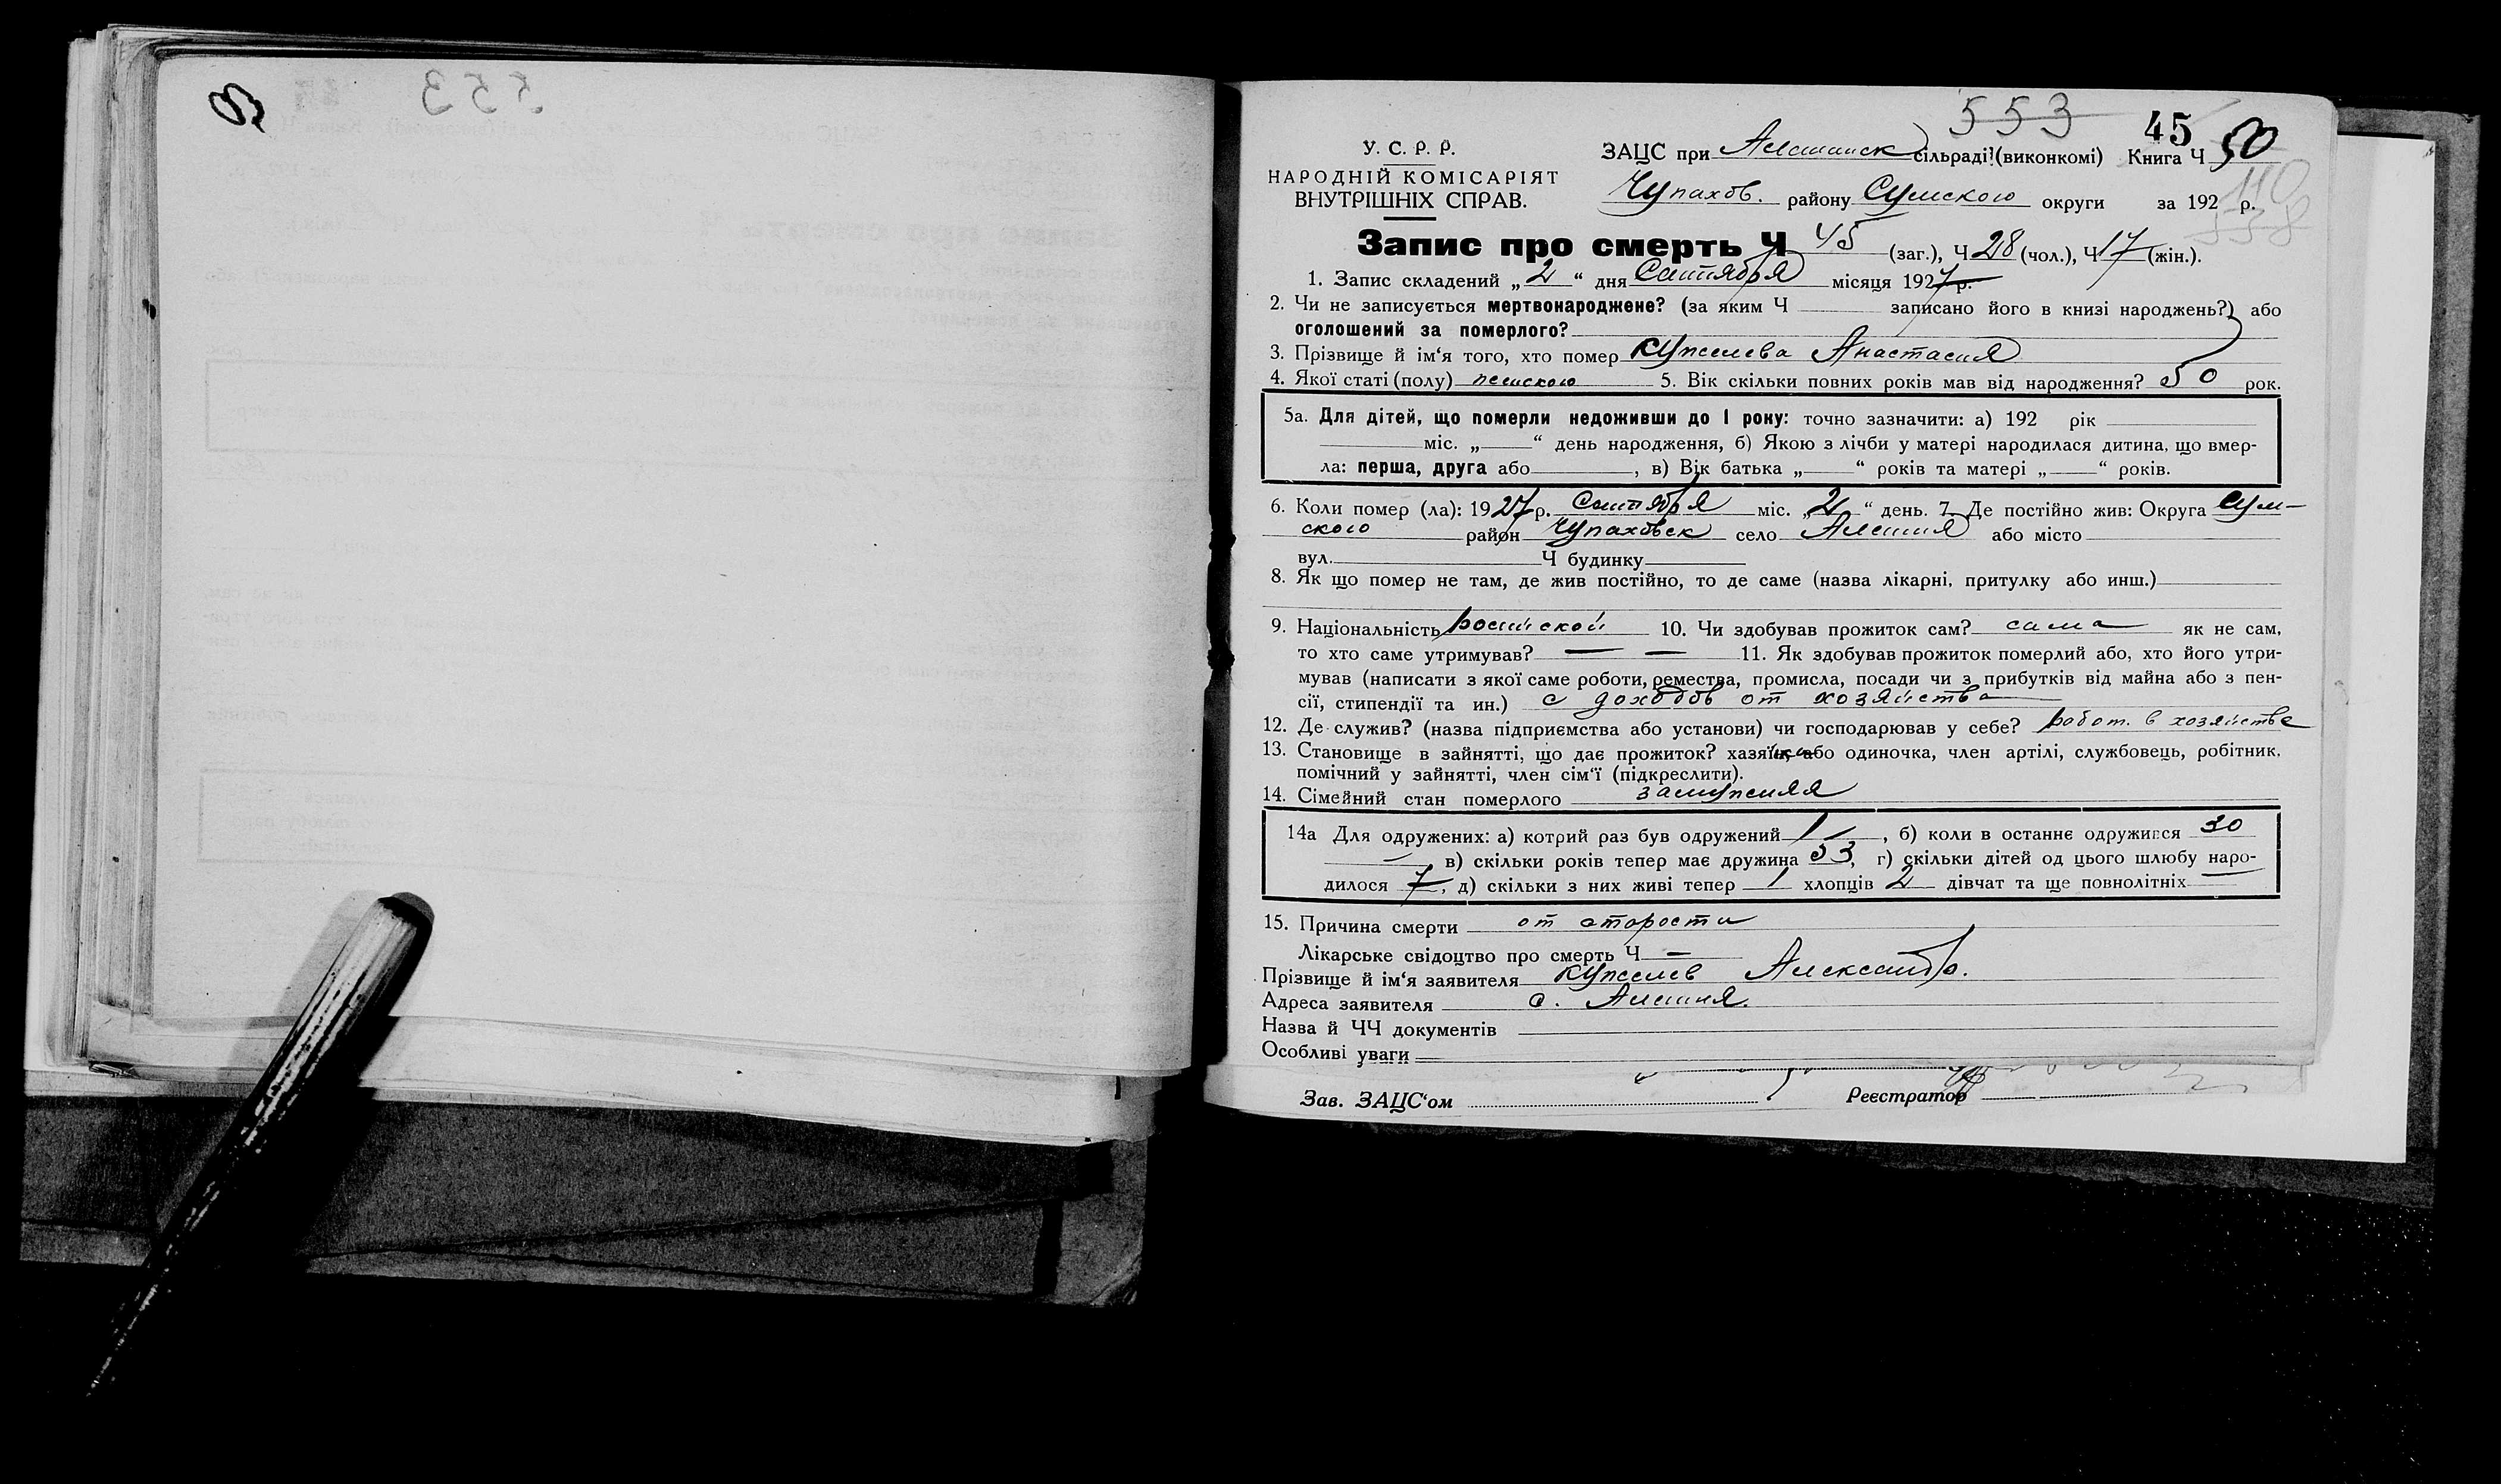 553
45 50
У. С. Р. Р.
НАРОДНІЙ КОМІСАРІЯТ
ВНУТРІШНІХ СПРАВ.
ЗАЦС при Алешинск сільраді (виконкомі) Книга Ч
Чупахов. району Сумского округи за 192 р.
110
538
Запис про смерть Ч 45 (заг.), Ч 28 (чол.), Ч 17 (жін.).
1. Запис складений „ 2 “ дня Сентября місяця 1927 р.
2. Чи не записується мертвонароджене? (за яким Ч записано його в книзі народжень?) або
оголошений за померлого?
3. Прізвище й ім‘я того, хто помер Анастасия
4. Якої статі (полу) женского 5. Вік скільки повних років мав від народження? 50 рок.
5а. Для дітей, що померли недоживши до 1 року: точно зазначити: а) 192 рік
міс. „ “ день народження, б) Якою з лічби у матері народилася дитина, що вмер-
ла: перша, друга або , в) Вік батька „ “ років та матері „ “ років.
6. Коли помер (ла): 1927 р. Сентября міс. „ 2 “ день. 7. Де постійно жив: Округа Сум-
ского район Чупаховск село Алешня або місто
вул. Ч будинку
8. Як що помер не там, де жив постійно, то де саме (назва лікарні, притулку або инш.)
9. Національність 10. Чи здобував прожиток сам? сама як не сам,
то хто саме утримував? — — 11. Як здобував прожиток померлий або, хто його утри-
мував (написати з якої саме роботи, ремества, промисла, посади чи з прибутків від майна або з пен-
сії, стипендії та ин.) с доходов от хозяйства
12. Де служив? (назва підприємства або установи) чи господарював у себе? работ. в хозяйстве
13. Становище в зайнятті, що дає прожиток? або одиночка, член артілі, службовець, робітник,
помічний у зайнятті, член сім‘ї (підкреслити).
14. Сімейний стан померлого замужняя
14а Для одружених: а) котрий раз був одружений 1 — , б) коли в останнє одружився 30
— , в) скільки років тепер має дружина 53, г) скільки дітей од цього шлюбу наро-
дилося 7, д) скільки з них живі тепер 1 хлопців 2 дівчат та ще повнолітніх —
15. Причина смерти от старости
Лікарське свідоцтво про смерть Ч —
Прізвище й ім‘я заявителя Александр.
Адреса заявителя с. Алешня.
Назва й ЧЧ документів
Особливі уваги
Зав. ЗАЦС‘ом Реєстратор